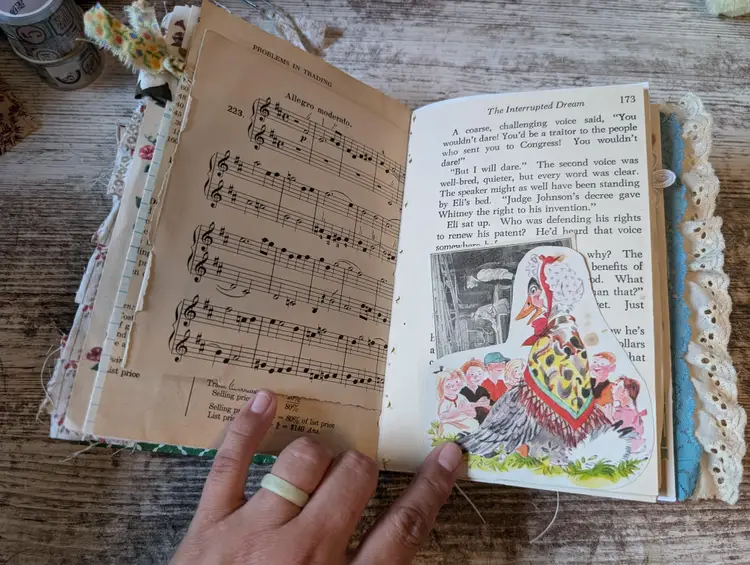 PROBLEMS IN TRADING
Allegro moderato.
223.
p
Selling price
80%
List price = 80% of list price
list price
The Interrupted Dream
173
A coarse, challenging voice said, "You
wouldn't dare! You'd be a traitor to the people
who sent you to Congress! You wouldn't
dare!"
"But I will dare." The second voice was
well-bred, quieter, but every word was clear.
The speaker might as well have been standing
by Eli's bed. "Judge Johnson's decree gave
Whitney the right to his invention."
Eli sat up. Who was defending his rights
to renew his patent? He'd heard that voice
somewhere
why? The
benefits of
Whit
han that?"
et. Just
ow he's
ollars
hat